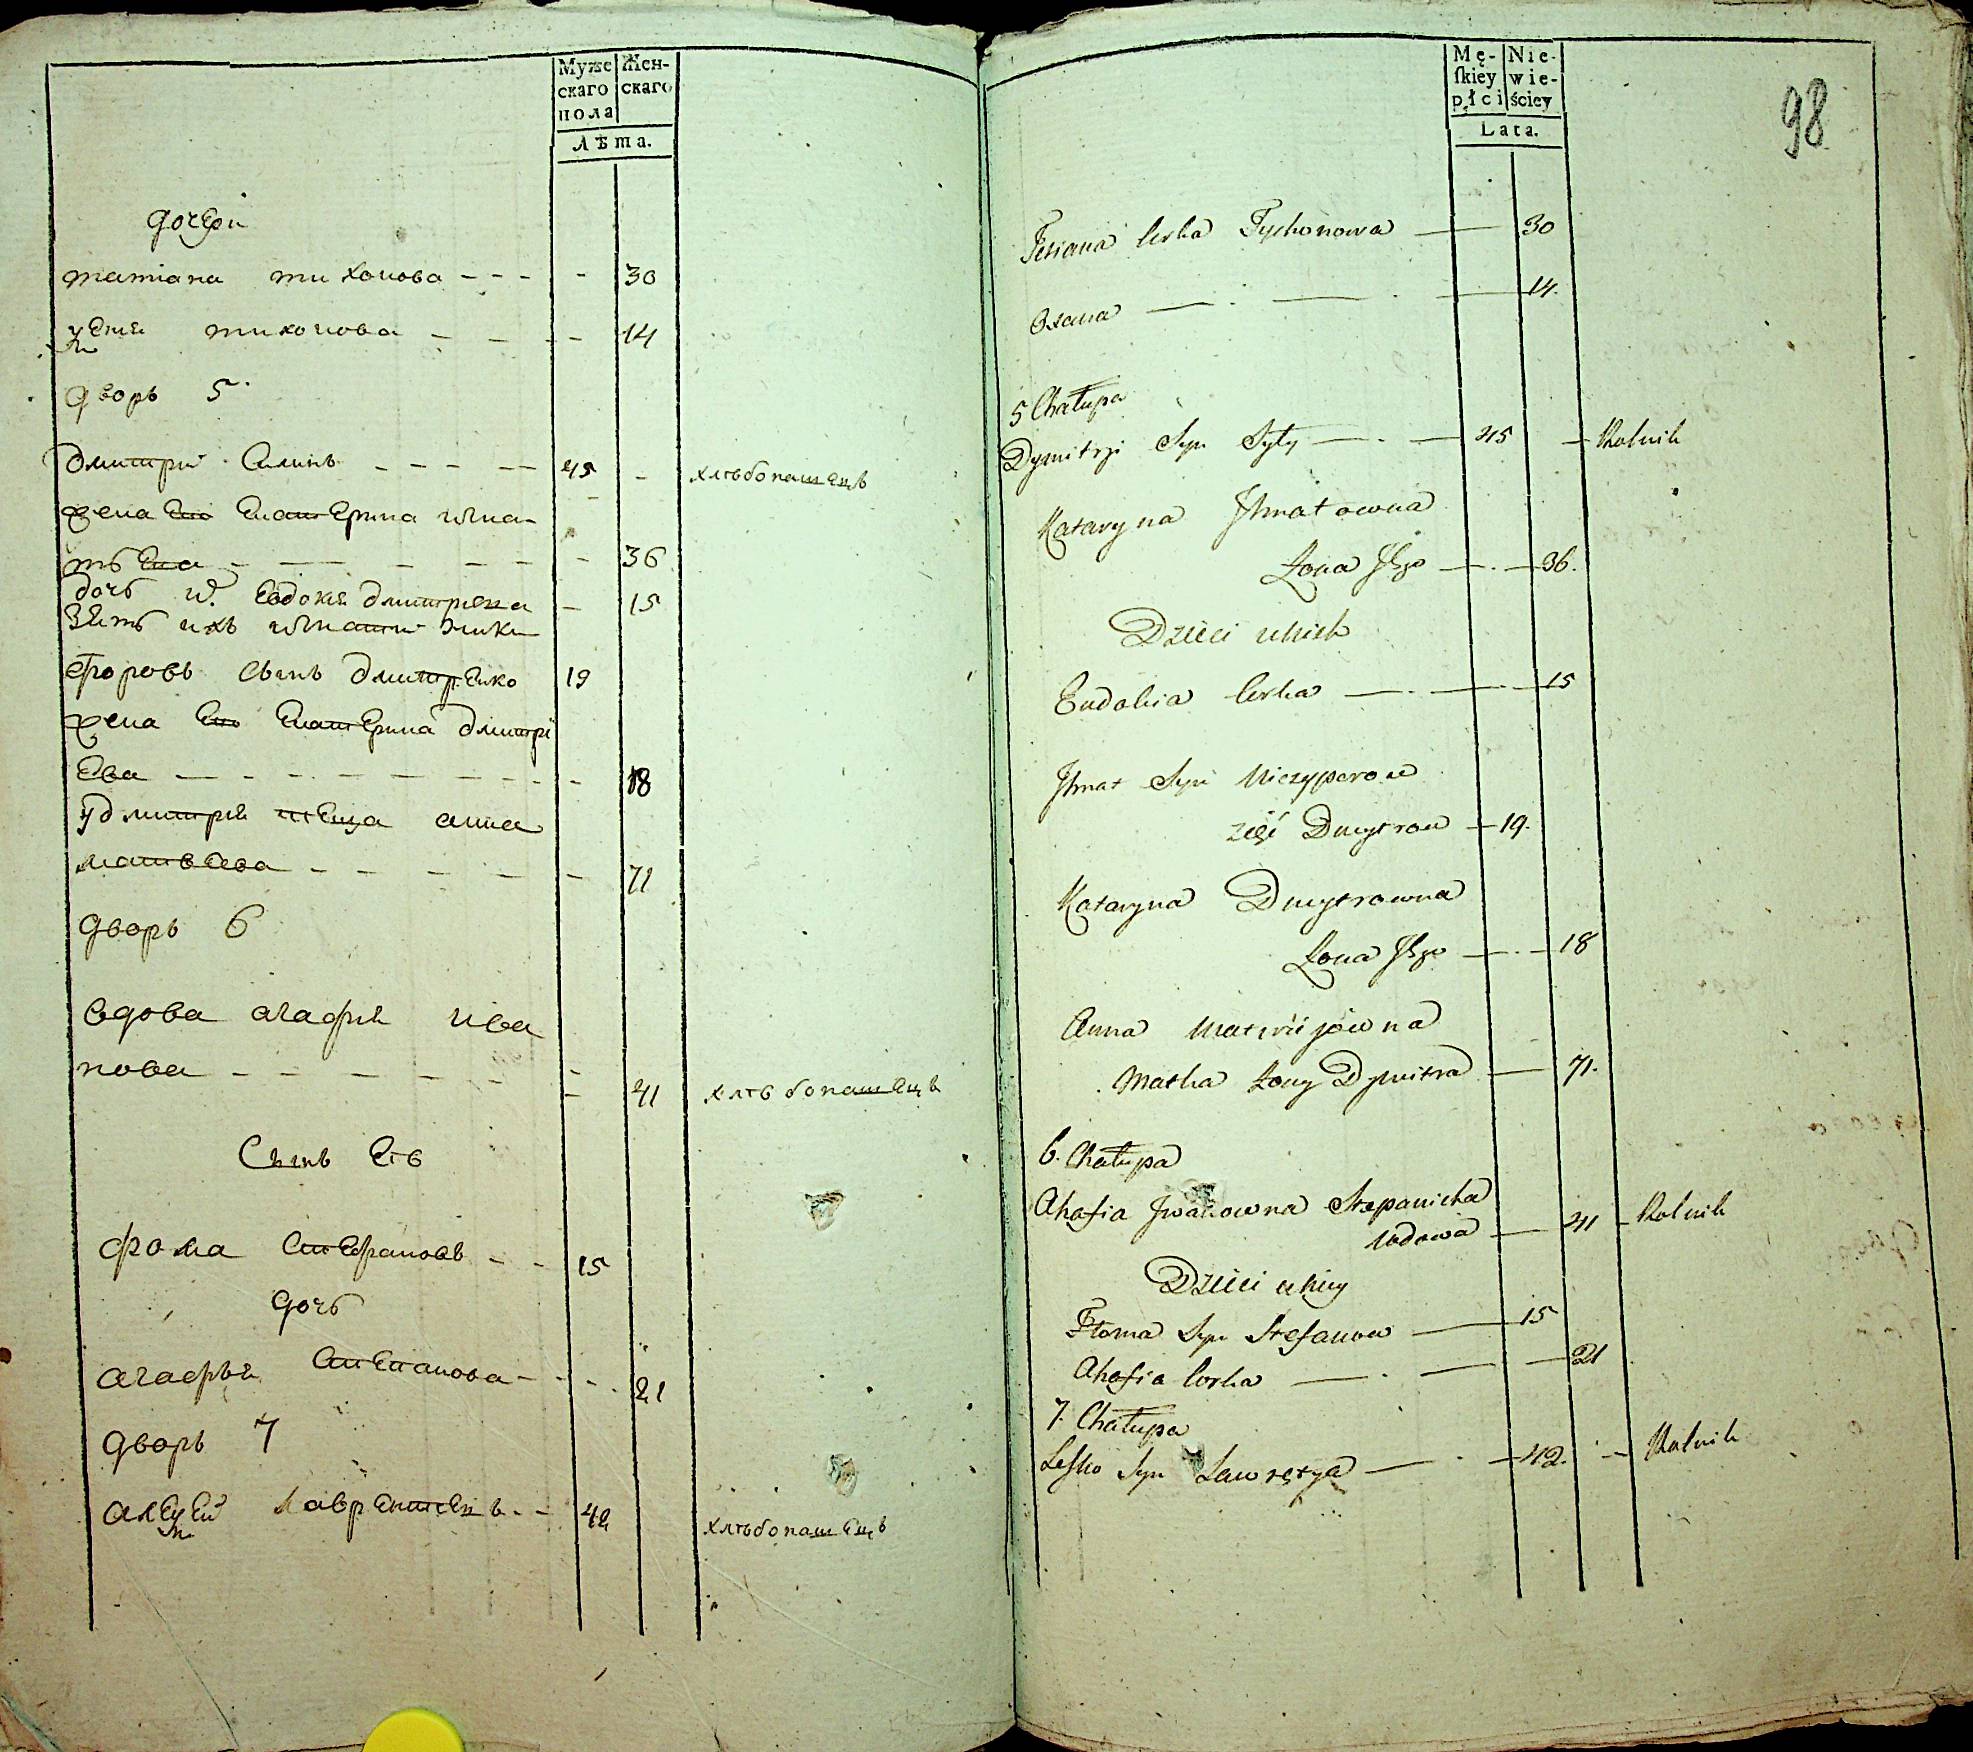 Муже
скаго
пола
Жен-
скаго
Лѣта.
дочери
татiана тихонова - - - - 30
тихонова - - - 14
дворъ 5
дмитрий Силинъ - - - - 45 - хлѣбопашецъ
жена Его Екатерина игна-
тьева - - - - - - 36
дочь их Евдокия дмитриева - 15
зять ихъ игнатий ники
форовъ сынъ дмитренко 19
жена Его Екатерина дмитрi
Ева - - - - - - - 18
у дмитрия теща анна
матвѣева - - - - - 71
дворъ 6
вдова агафия ива
нова - - - - - 41 хлѣбопашецъ
Сынъ Ея
фома Стефановъ - - 15
дочь
агафья Степанова - - - 21
дворъ 7
алексей лаврентиевъ - - 42 хлѣбопашецъ
Mę-
skiey
płci
Nie-
wie-
ściey
Lata.
98
Tetiana Corka Tychonowa 30
Oxana 14.
5 Chałupa
Dymitryi Syn Syły 45 Rolnik
Kataryna Ihnatowna
Żona Jego 36.
Dzieci u nich
Eudokia Corka 15
Ihnat Syn Niczyporow
zięć Dmytrow 19.
Kataryna Dmytrowna
Żona Jego 18
Anna Matwijowna
Matka Żony Dymitra 71.
6. Chałupa
Ahafia Iwanowna Stepanicha
Wdowa 41 Rolnik
Dzieci u niey
Toma Syn Stefanow 15
Ahafia Corka 21
7. Chałupa
Lesko Syn Ławretya 42. Rolnik